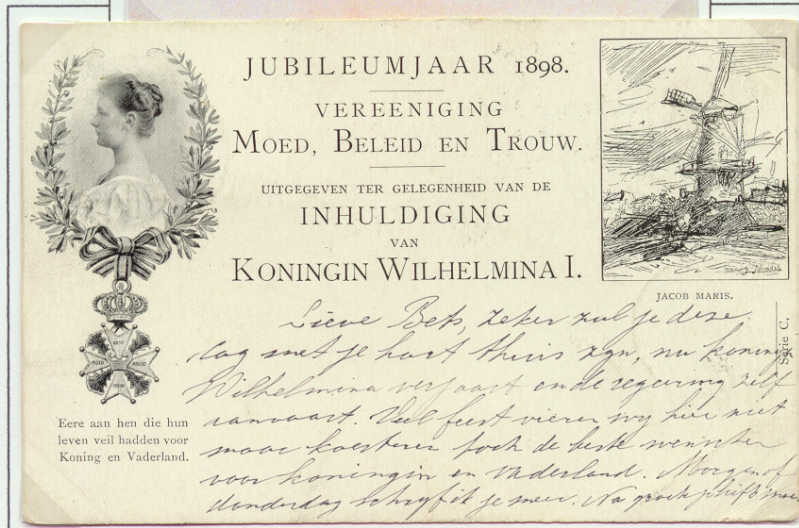 JUBILEUMJAAR 1898.
VEREENIGING
MOED, BELEID EN TROUW.
UITGEGEVEN TER GELEGENHEID VAN DE
INHULDIGING
VAN
KONINGIN WILHELMINA I.
JACOB MARIS.
Serie C.
Eere aan hen die hun
leven veil hadden voor
Koning en Vaderland.
Lieve Bets, zeker zul je deze
dag met je hart thuis zijn, nu koningin
Wilhelmina verjaart en de regeering zelf
aanvaart. Veel feest vieren wij hier niet
maar koesteren toch de beste wenschen
voor koningin en vaderland. Morgen of
donderdag schrijf ik je meer. Na